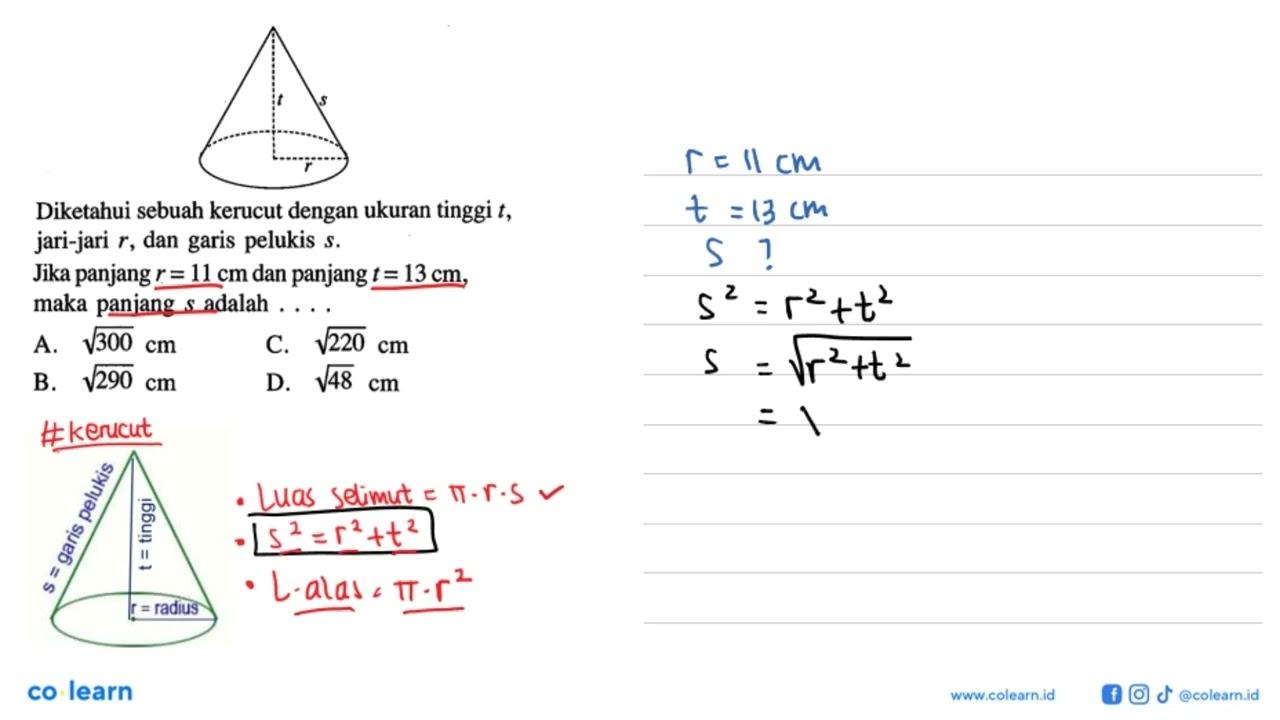 t
s
r
Diketahui sebuah kerucut dengan ukuran tinggi t,
jari-jari r, dan garis pelukis s.
Jika panjang r = 11 cm dan panjang t = 13 cm,
maka panjang s adalah . . . .
A. √300 cm C. √220 cm
B. √290 cm D. √48 cm
#kerucut
s = garis pelukis
t = tinggi
r = radius
• Luas selimut = π·r·s ✓
• s² = r² + t²
• L·alas = π·r²
r = 11 cm
t = 13 cm
s ?
s² = r² + t²
s = √r² + t²
= \
co·learn
www.colearn.id
@colearn.id